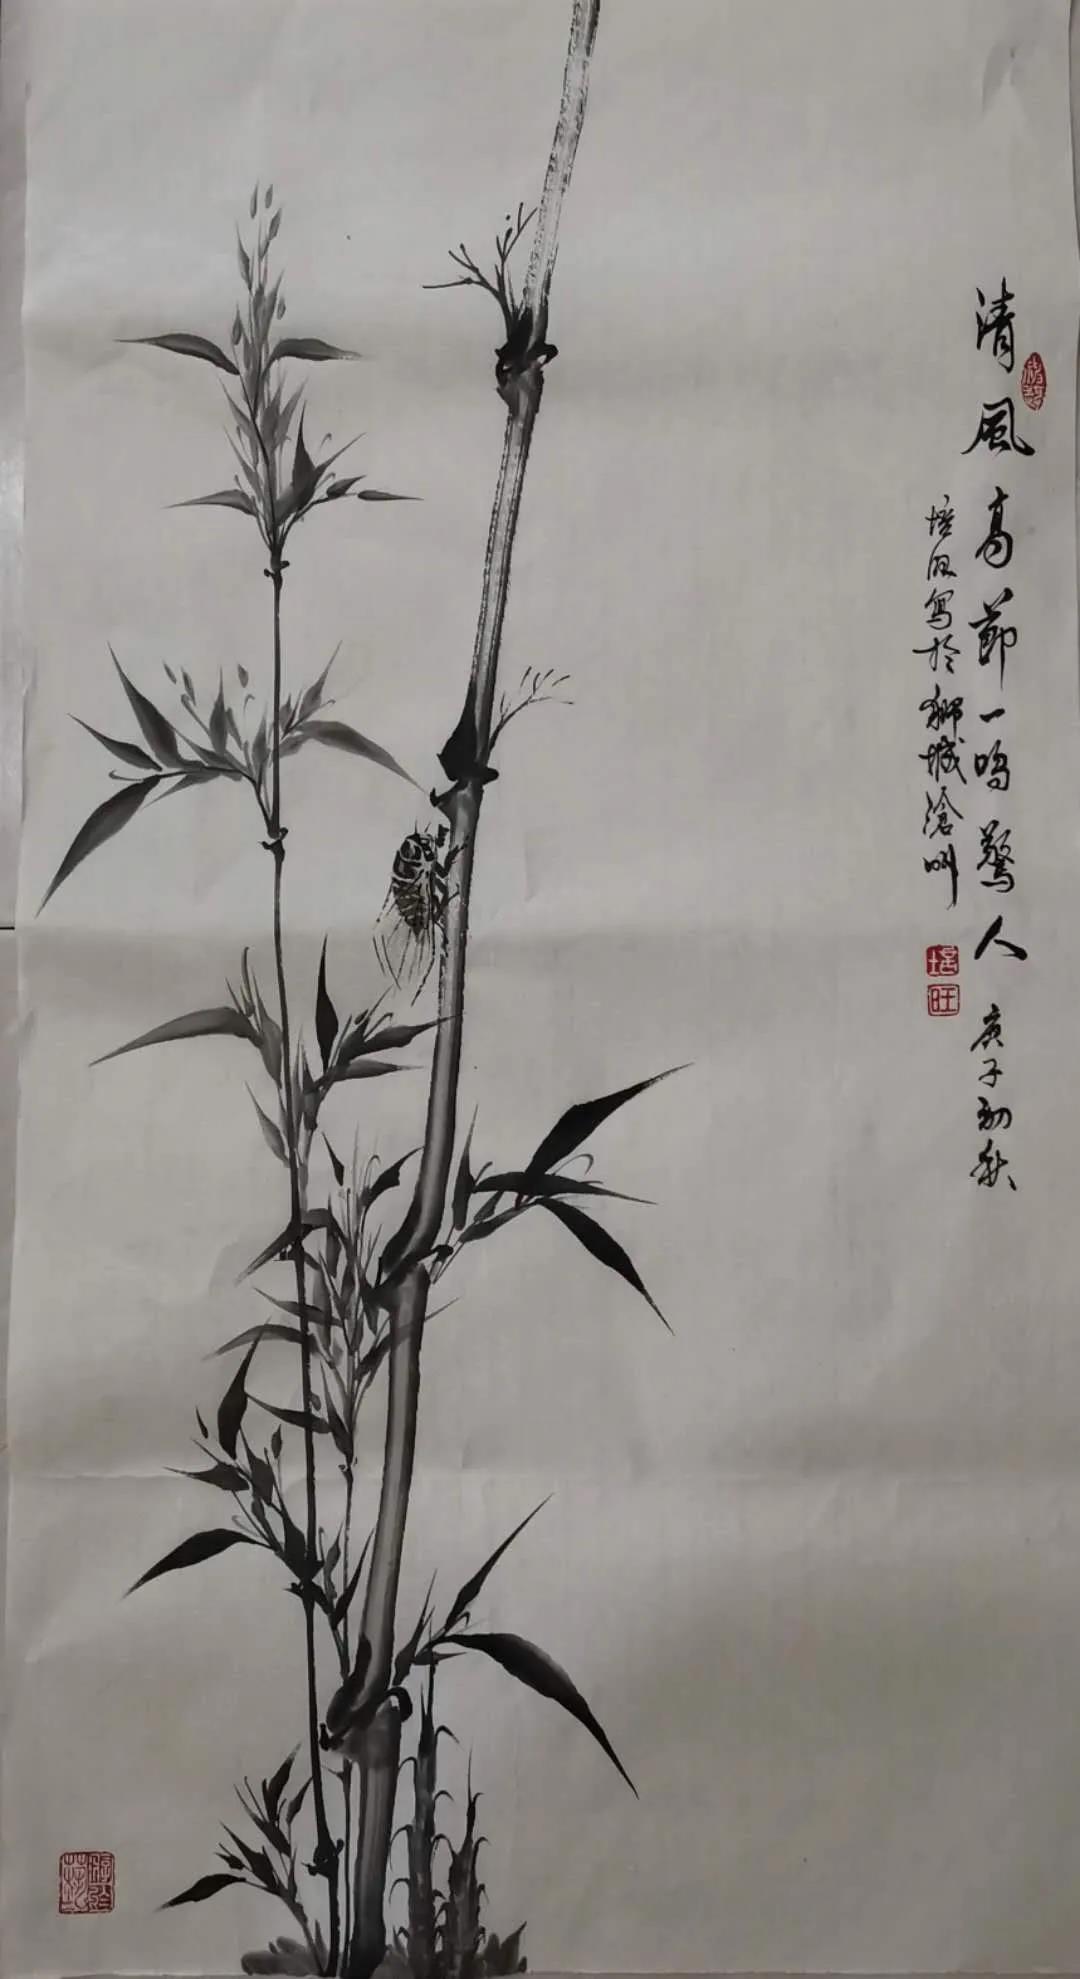 清風高節一鳴驚人 庚子初秋
培旺寫於獅城滄州
培旺